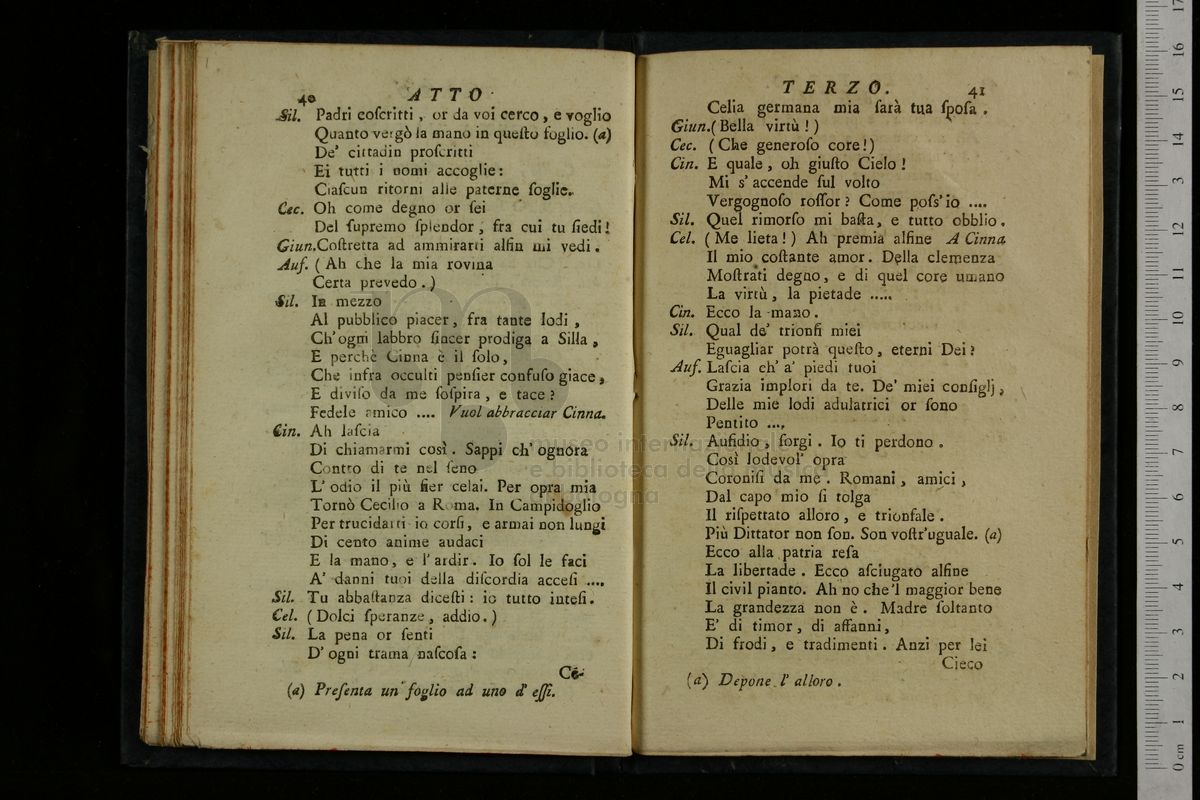 40 ATTO
Sil. Padri coſcritti, or da voi cerco, e voglio
Quanto vergò la mano in queſto foglio. (a)
De' cittadin proſcritti
Ei tutti i nomi accoglie:
Ciaſcun ritorni alle paterne ſoglie.
Cec. Oh come degno or ſei
Del ſupremo ſplendor, fra cui tu ſiedi!
Giun. Coſtretta ad ammirarti alfin mi vedi.
Auf. (Ah che la mia rovina
Certa prevedo.)
Sil. In mezzo
Al pubblico piacer, fra tante lodi,
Ch'ogni labbro ſincer prodiga a Silla,
E perchè Cinna è il ſolo,
Che infra occulti penſier confuſo giace,
E diviſo da me ſoſpira, e tace?
Fedele amico .... Vuol abbracciar Cinna.
Cin. Ah laſcia
Di chiamarmi così. Sappi ch' ognora
Contro di te nel ſeno
L' odio il più fier celai. Per opra mia
Tornò Cecilio a Roma. In Campidoglio
Per trucidarti io corſi, e armai non lungi
Di cento anime audaci
E la mano, e l'ardir. Io ſol le faci
A' danni tuoi della diſcordia acceſi ....
Sil. Tu abbaſtanza diceſti: io tutto inteſi.
Cel. (Dolci ſperanze, addio.)
Sil. La pena or ſenti
D' ogni trama naſcoſa:
Ce-
(a) Preſenta un foglio ad uno d' eſſi.
TERZO. 41
Celia germana mia ſarà tua ſpoſa.
Giun. (Bella virtù!)
Cec. (Che generoſo core!)
Cin. E quale, oh giuſto Cielo!
Mi s' accende ſul volto
Vergognoſo roſſor? Come poſs' io ....
Sil. Quel rimorſo mi baſta, e tutto obblio.
Cel. (Me lieta!) Ah premia alfine A Cinna
Il mio coſtante amor. Della clemenza
Moſtrati degno, e di quel core umano
La virtù, la pietade .....
Cin. Ecco la mano.
Sil. Qual de' trionfi miei
Eguagliar potrà queſto, eterni Dei?
Auf. Laſcia ch' a' piedi tuoi
Grazia implori da te. De' miei conſiglj,
Delle mie lodi adulatrici or ſono
Pentito ....
Sil. Aufidio, ſorgi. Io ti perdono.
Così lodevol' opra
Coroniſi da me. Romani, amici,
Dal capo mio ſi tolga
Il riſpettato alloro, e trionfale.
Più Dittator non ſon. Son voſtr'uguale. (a)
Ecco alla patria reſa
La libertade. Ecco aſciugato alfine
Il civil pianto. Ah no che'l maggior bene
La grandezza non è. Madre ſoltanto
E' di timor, di affanni,
Di frodi, e tradimenti. Anzi per lei
Cieco
(a) Depone l' alloro.
museo internazionale
e biblioteca della musica
di bologna
0 cm 1 2 3 4 5 6 7 8 9 10 11 12 13 14 15 16 17